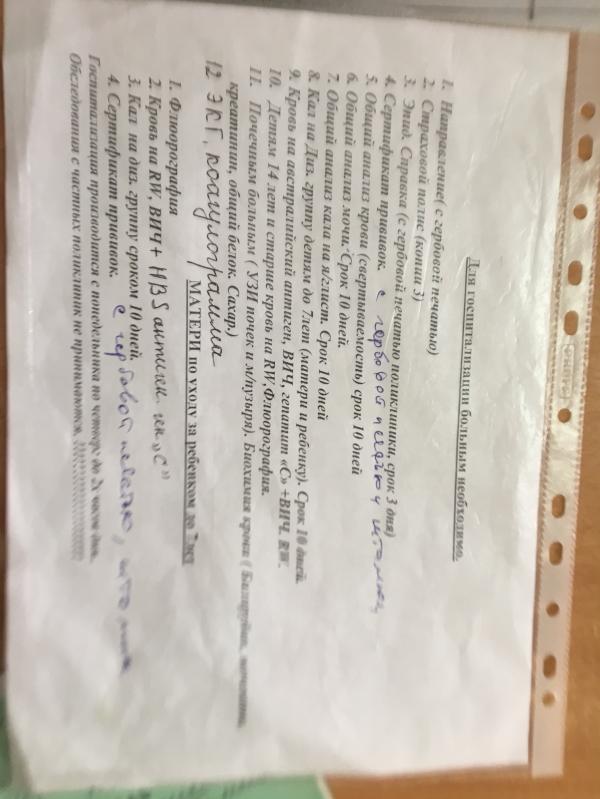 Для госпитализации больным необходимо.
1. Направление( с гербовой печатью)
2. Страховой полис (копии 3)
3. Эпид. Справка (с гербовой печатью поликлиники, срок 3 дня)
4. Сертификат прививок. с гербовой печатью и штампы,
5. Общий анализ крови (свертываемость) срок 10 дней
6. Общий анализ мочи. Срок 10 дней.
7. Общий анализ кала на я/глист. Срок 10 дней
8. Кал на Диз. группу детям до 7лет (матери и ребенку). Срок 10 дней.
9. Кровь на австралийский антиген, ВИЧ, гепатит «С» +ВИЧ. RW.
10. Детям 14 лет и старше кровь на RW,Флюорография.
11. Почечным больным ( УЗИ почек и м/пузыря). Биохимия крови ( Билирубин, мочевина,
креатанин, общий белок. Сахар.)
12 ЭКГ, коагулограмма
МАТЕРИ по уходу за ребенком до 7лет
1. Флюорография
2. Кровь на RW, ВИЧ + HBS антиген, геп „С"
3. Кал на диз. группу сроком 10 дней.
4. Сертификат прививок. с гербовой печатью, штампы
Госпитализация производится с понедельника по четверг до 2х часов дня.
Обследования с частных поликлиник не принимаются.